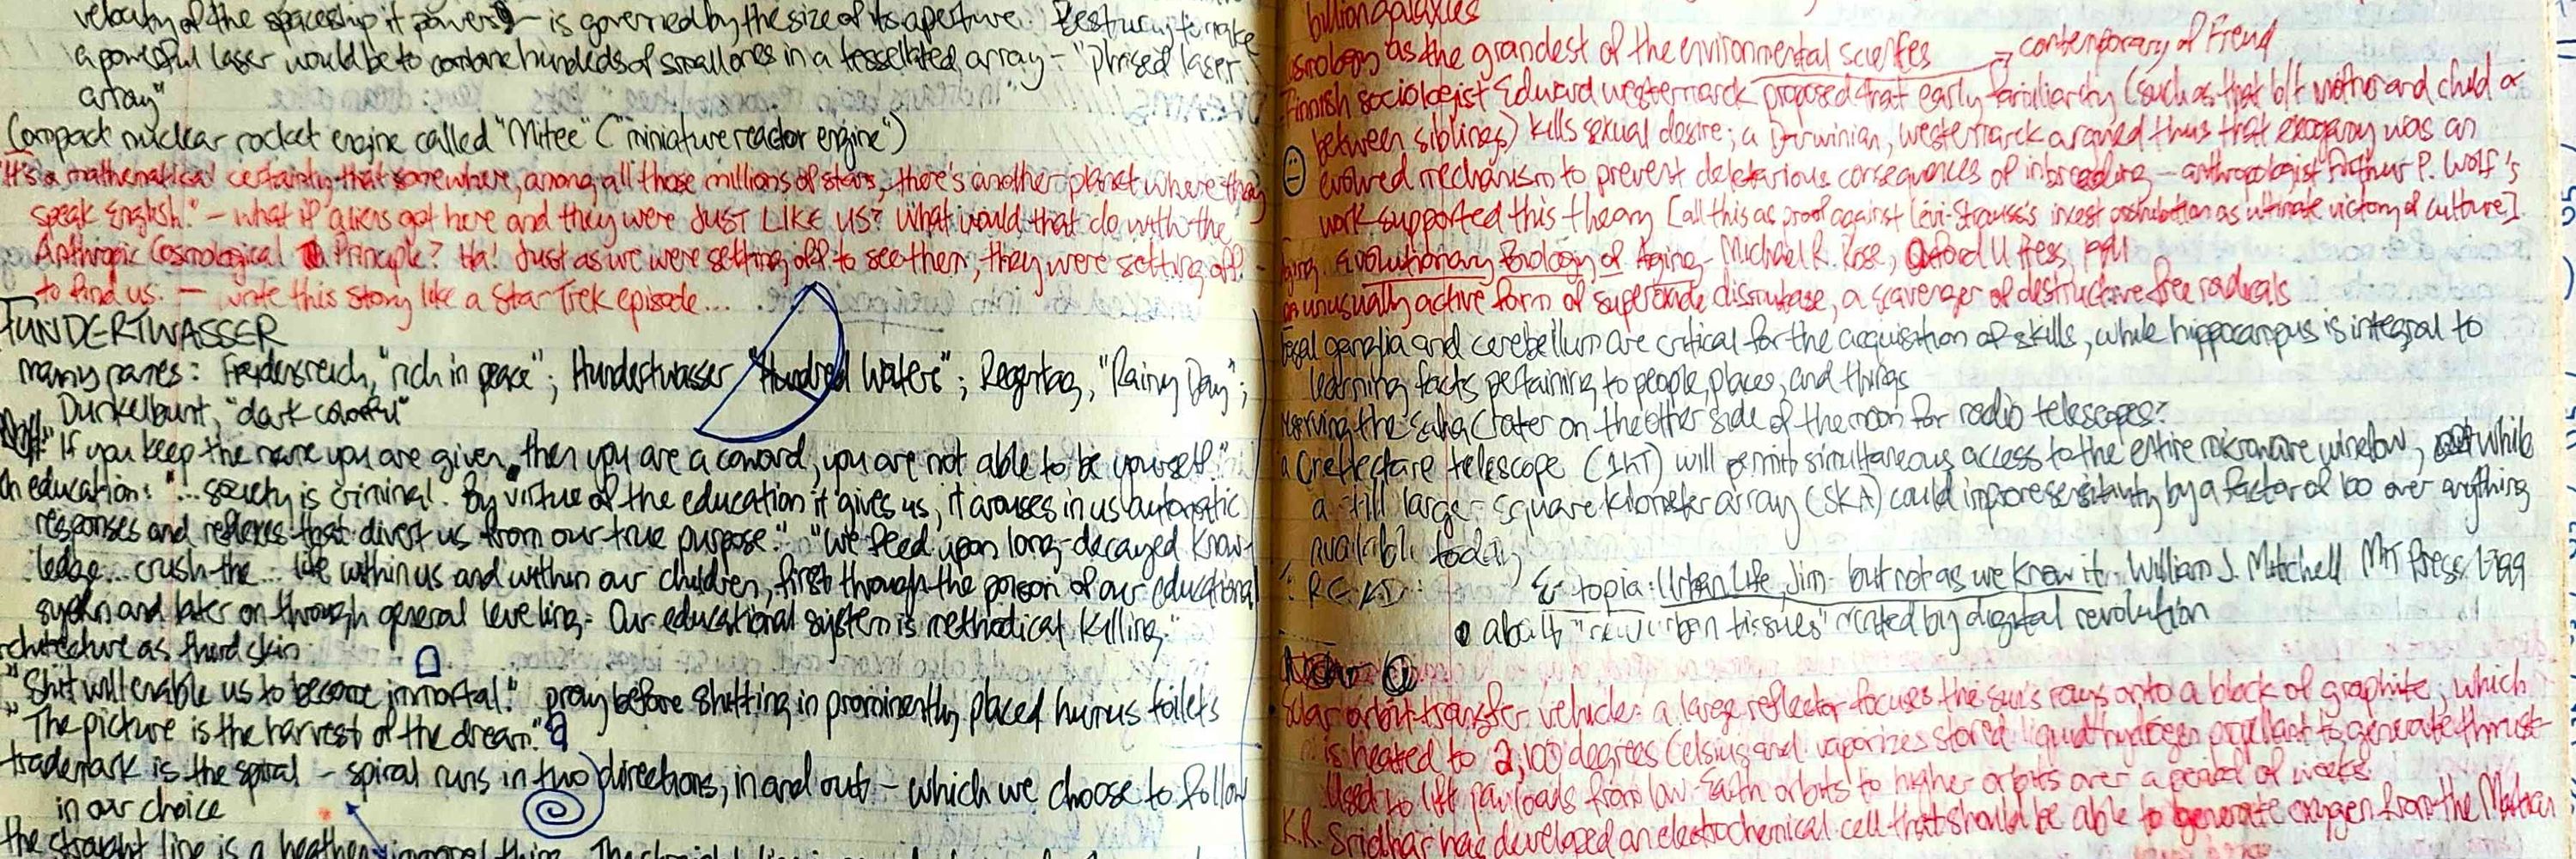 velocity of the spaceship it powers — is governed by the size of its aperture. Best way to make
a powerful laser would be to combine hundreds of small ones in a tessellated array — "phased laser
array"
Compact nuclear rocket engine called "Mitee" ("miniature reactor engine")
"It's a mathematical certainty that somewhere, among all those millions of stars, there's another planet where they
speak English." — what if aliens got here and they were JUST LIKE US? What would that do with the
Anthropic Cosmological Principle? Ha! Just as we were setting off to see them, they were setting off
to find us. — write this story like a Star Trek episode...
HUNDERTWASSER
many names: Freidensreich, "rich in peace"; Hundertwasser "Hundred Waters"; Regentag, "Rainy Day";
Dunkelbunt, "dark colorful"
"If you keep the name you are given, then you are a coward, you are not able to be yourself."
On education: "...society is criminal. By virtue of the education it gives us, it arouses in us automatic
responses and reflexes that divert us from our true purpose." "We feed upon long-decayed know-
ledge... crush the... life within us and within our children, first through the poison of our educational
system and later on through general leveling. Our educational system is methodical killing."
architecture as third skin
"Shit will enable us to become immortal." pray before shitting in prominently placed humus toilets
"The picture is the harvest of the dream."
trademark is the spiral — spiral runs in two directions, in and out — which we choose to follow
in our choice
the straight line is a heathen, immoral thing. The straight line is
billion galaxies
cosmology as the grandest of the environmental sciences → contemporary of Freud
Finnish sociologist Edward Westermarck proposed that early familiarity (such as that b/t mother and child or
between siblings) kills sexual desire; a Darwinian, Westermarck argued thus that exogamy was an
evolved mechanism to prevent deleterious consequences of inbreeding — anthropologist Arthur P. Wolf's
work supported this theory [all this as proof against Lévi-Strauss's incest prohibition as ultimate victory of culture]
Aging. Evolutionary Biology of Aging - Michael R. Rose, Oxford U Press, 1991
an unusually active form of superoxide dismutase, a scavenger of destructive free radicals
Basal ganglia and cerebellum are critical for the acquisition of skills, while hippocampus is integral to
learning facts pertaining to people, places, and things
reserving the Saha Crater on the other side of the moon for radio telescopes?
a 1 hectare telescope (1hT) will permit simultaneous access to the entire microwave window, while
a still larger square kilometer array (SKA) could improve sensitivity by a factor of 100 over anything
available today
: READ: E-topia: Urban Life, Jim — but not as we know it. William J. Mitchell MIT Press, 1999
about "new urban tissues" created by digital revolution
Solar orbit-transfer vehicle: a large reflector focuses the sun's rays onto a block of graphite, which
is heated to 2,100 degrees Celsius and vaporizes stored liquid hydrogen propellant to generate thrust
Used to lift payloads from low-Earth orbits to higher orbits over a period of weeks
K.R. Sridhar has developed an electrochemical cell that should be able to generate oxygen from the Martian